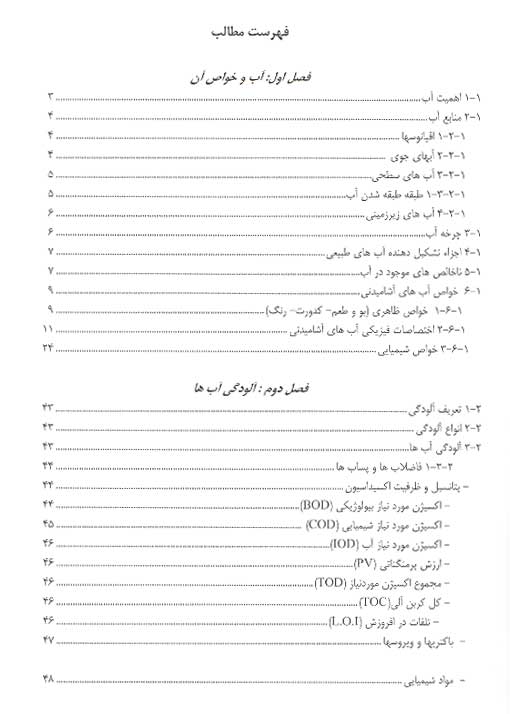 فهرست مطالب
فصل اول: آب و خواص آن
۱-۱ اهمیت آب ........ ۳
۲-۱ منابع آب ........ ۴
۱-۲-۱ اقیانوسها ........ ۴
۲-۲-۱ آبهای جوی ........ ۴
۳-۲-۱ آب های سطحی ........ ۵
۱-۳-۲-۱ طبقه طبقه شدن آب ........ ۵
۴-۲-۱ آب های زیرزمینی ........ ۶
۳-۱ چرخه آب ........ ۶
۴-۱ اجزاء تشکیل دهنده آب های طبیعی ........ ۷
۵-۱ ناخالص های موجود در آب ........ ۷
۶-۱ خواص آب های آشامیدنی ........ ۹
۱-۶-۱ خواص ظاهری (بو و طعم- کدورت- رنگ) ........ ۹
۲-۶-۱ اختصاصات فیزیکی آب های آشامیدنی ........ ۱۱
۳-۶-۱ خواص شیمیایی ........ ۲۴
فصل دوم : آلودگی آب ها
۱-۲ تعریف آلودگی ........ ۴۳
۲-۲ انواع آلودگی ........ ۴۳
۳-۲ آلودگی آب ها ........ ۴۳
۱-۳-۲ فاضلاب ها و پساب ها ........ ۴۴
- پتانسیل و ظرفیت اکسیداسیون ........ ۴۴
- اکسیژن مورد نیاز بیولوژیکی (BOD) ........ ۴۴
- اکسیژن مورد نیاز شیمیایی (COD) ........ ۴۵
- اکسیژن مورد نیاز آب (IOD) ........ ۴۶
- ارزش پرمنگناتی (PV) ........ ۴۶
- مجموع اکسیژن موردنیاز (TOD) ........ ۴۶
- کل کربن آلی(TOC) ........ ۴۶
- تلفات در افروزش (L.O.I) ........ ۴۶
- باکتریها و ویروسها ........ ۴۷
- مواد شیمیایی ........ ۴۸